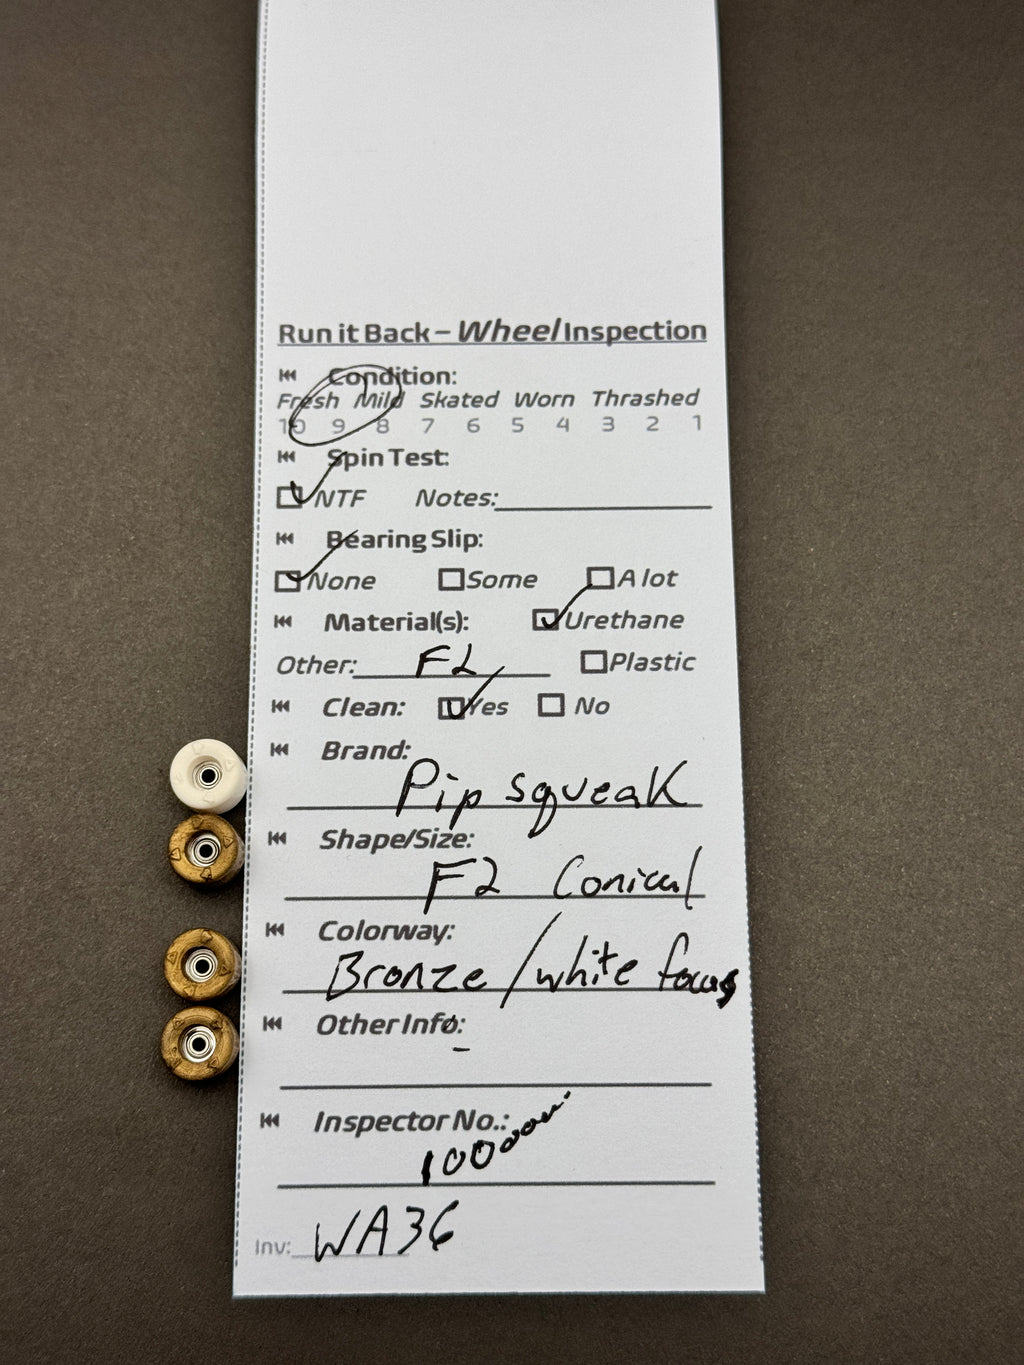 Run it Back – Wheel Inspection
Condition:
Fresh Mild Skated Worn Thrashed
10 9 8 7 6 5 4 3 2 1
Spin Test:
NTF Notes:
Bearing Slip:
None Some A lot
Material(s): Urethane
Other: F2 Plastic
Clean: Yes No
Brand:
Pip squeak
Shape/Size:
F2 Conical
Colorway:
Bronze/white focus
Other Info:
-
Inspector No.:
Inv: WA36